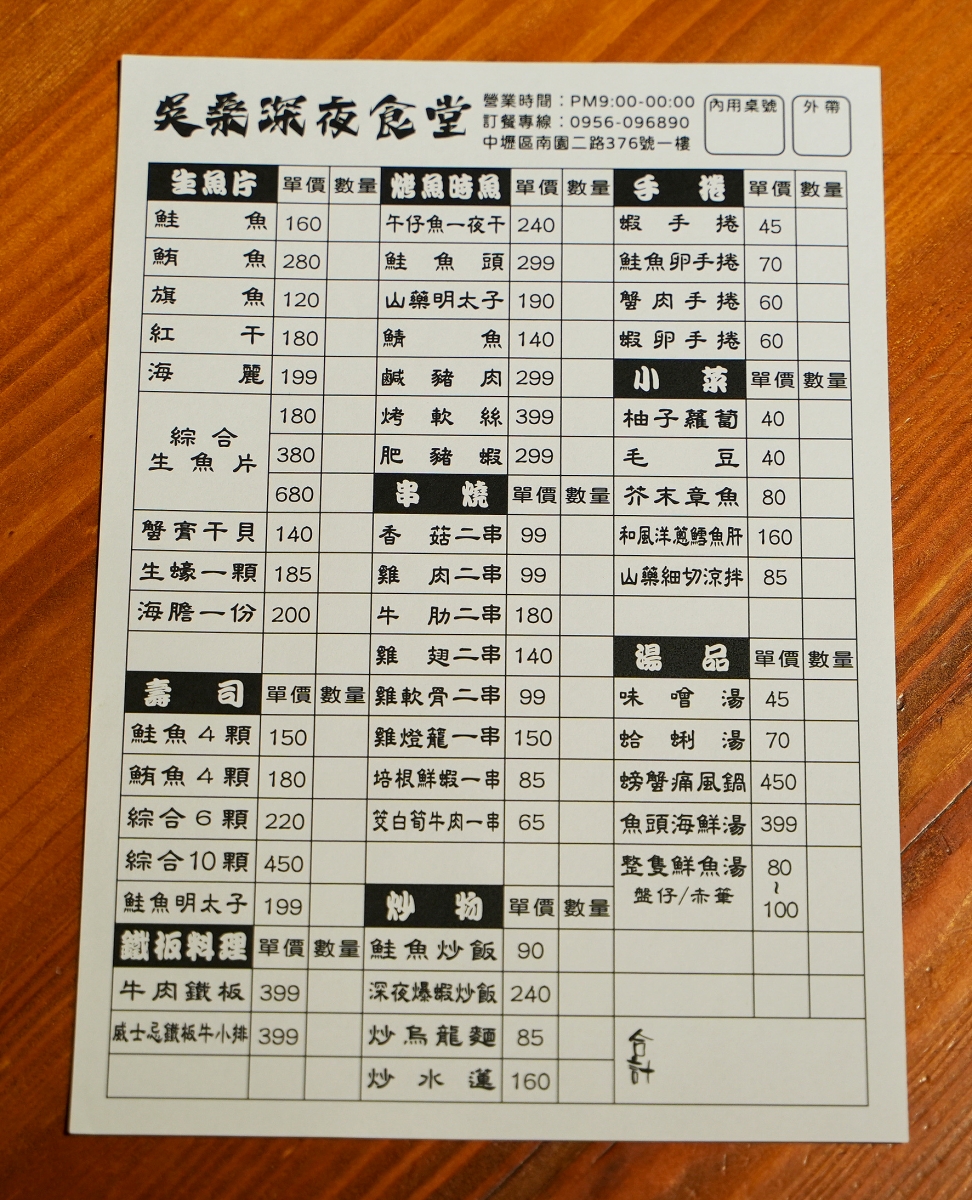 吳桑深夜食堂
營業時間：PM9:00-00:00
訂餐專線：0956-096890
中壢區南園二路376號一樓
內用桌號
外帶
生魚片 單價 數量
鮭魚 160
鮪魚 280
旗魚 120
紅干 180
海麗 199
綜合生魚片 180
380
680
蟹膏干貝 140
生蠔一顆 185
海膽一份 200
壽司 單價 數量
鮭魚4顆 150
鮪魚4顆 180
綜合6顆 220
綜合10顆 450
鮭魚明太子 199
鐵板料理 單價 數量
牛肉鐵板 399
威士忌鐵板牛小排 399
烤魚時魚 單價 數量
午仔魚一夜干 240
鮭魚頭 299
山藥明太子 190
鯖魚 140
鹹豬肉 299
烤軟絲 399
肥豬蝦 299
串燒 單價 數量
香菇二串 99
雞肉二串 99
牛肋二串 180
雞翅二串 140
雞軟骨二串 99
雞燈籠一串 150
培根鮮蝦一串 85
茭白筍牛肉一串 65
炒物 單價 數量
鮭魚炒飯 90
深夜爆蝦炒飯 240
炒烏龍麵 85
炒水蓮 160
手捲 單價 數量
蝦手捲 45
鮭魚卵手捲 70
蟹肉手捲 60
蝦卵手捲 60
小菜 單價 數量
柚子蘿蔔 40
毛豆 40
芥末章魚 80
和風洋蔥鱈魚肝 160
山藥細切涼拌 85
湯品 單價 數量
味噌湯 45
蛤蜊湯 70
螃蟹痛風鍋 450
魚頭海鮮湯 399
整隻鮮魚湯 80~100
盤仔/赤筆
合計